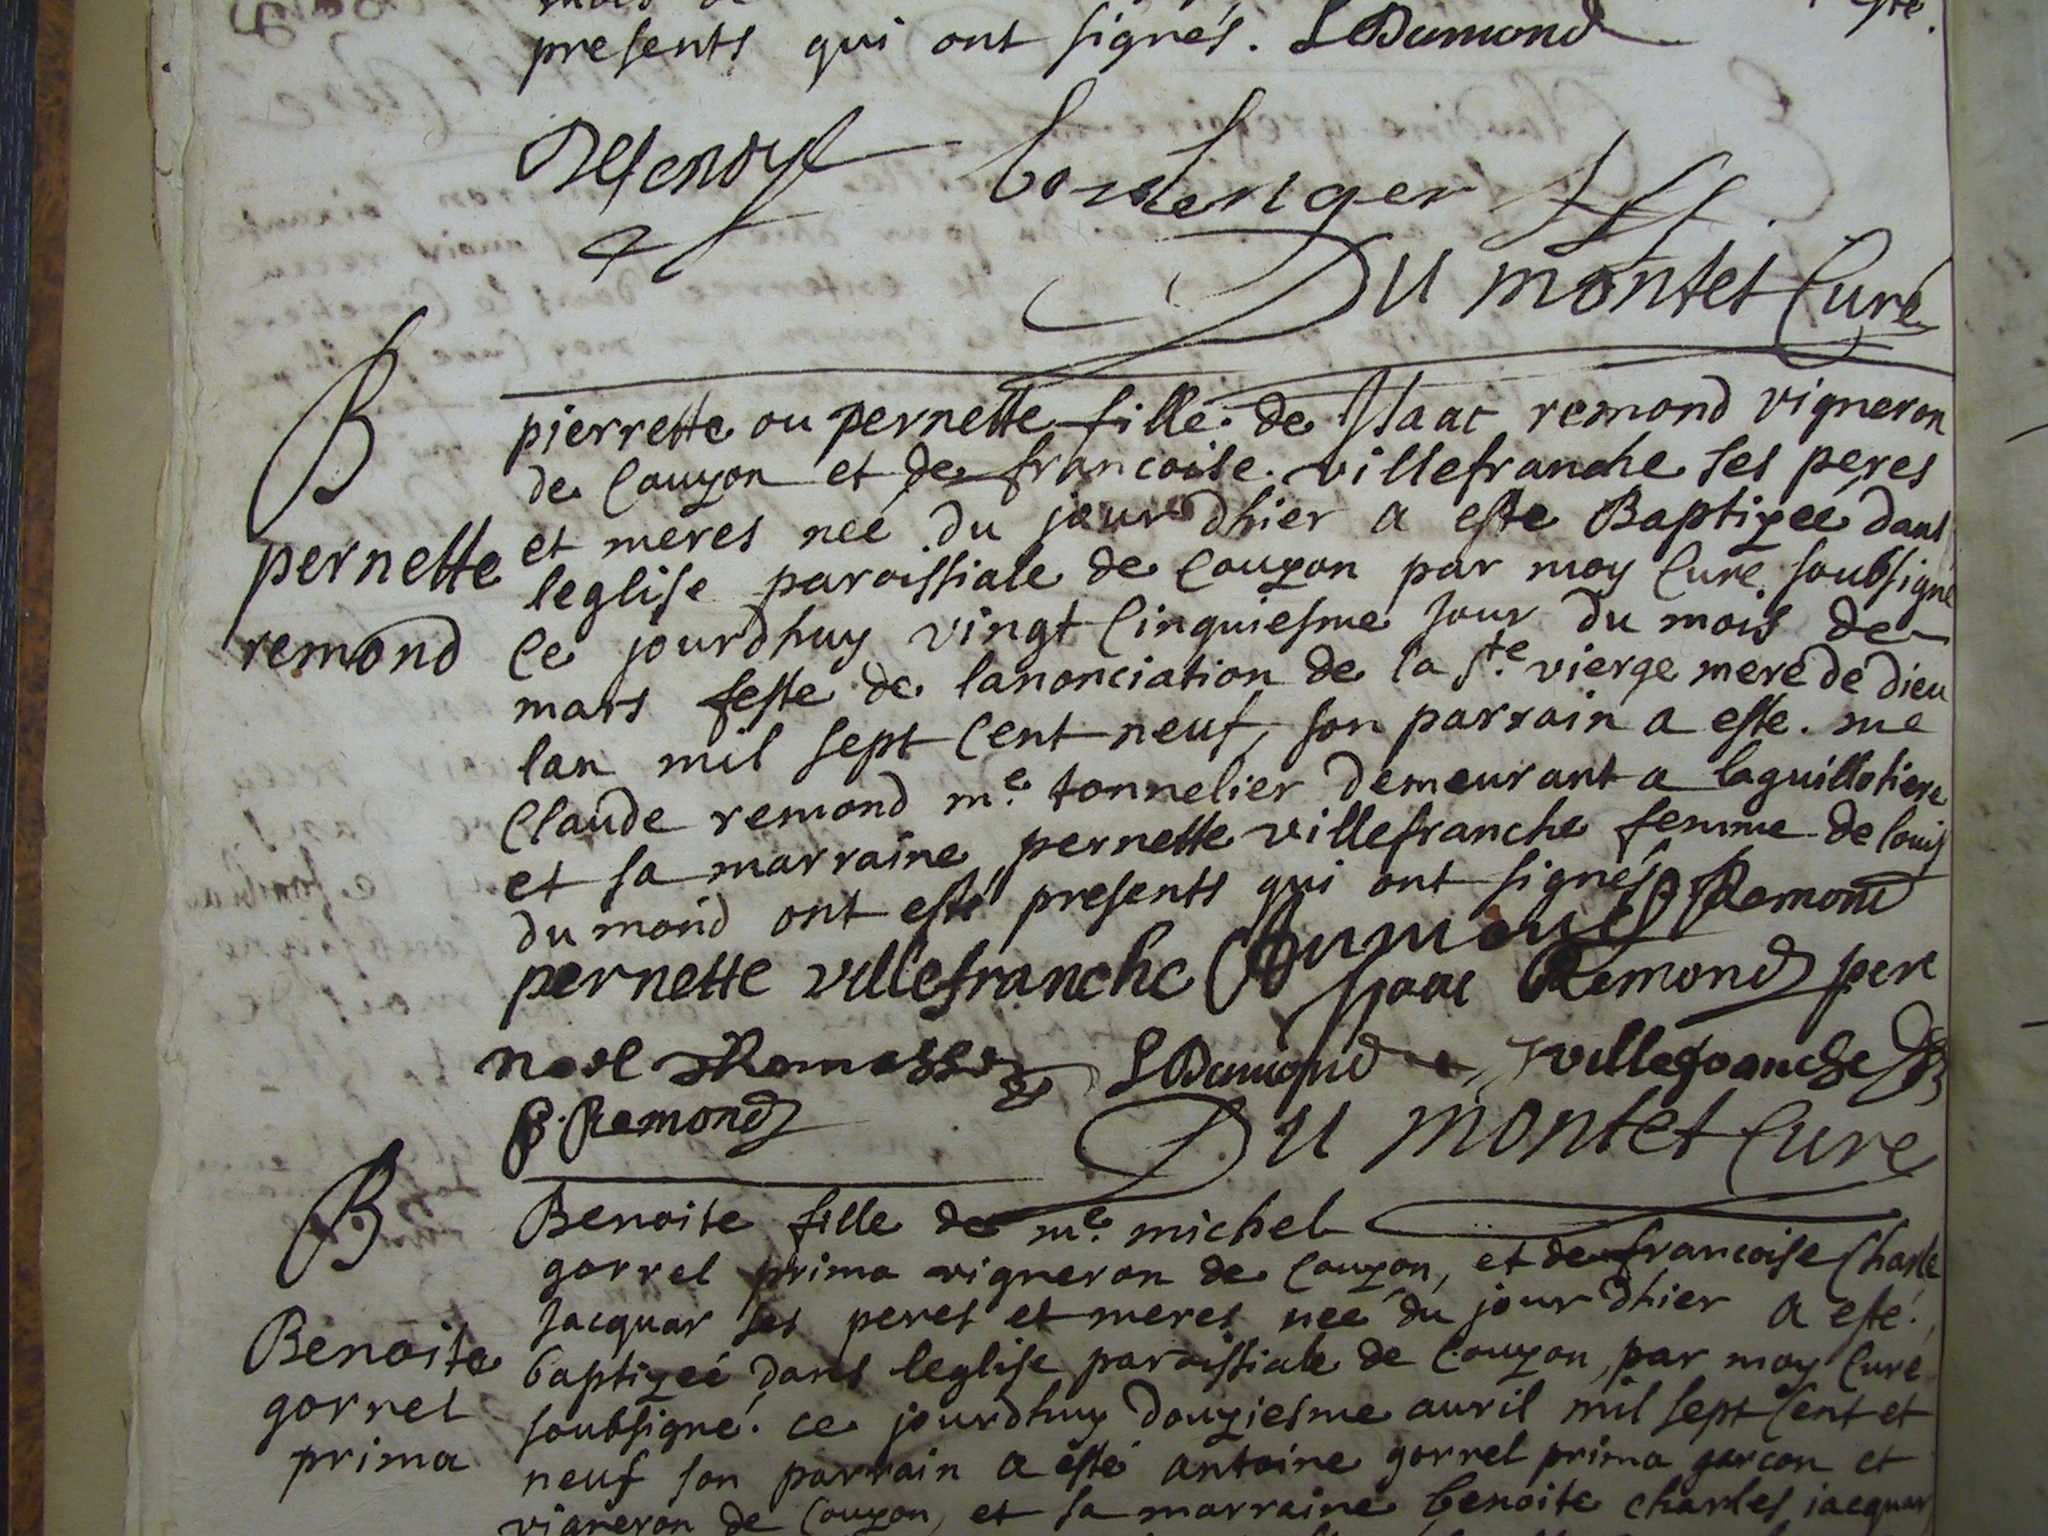 presents qui ont signés. L Dumond
boulenger
Du montet Curé
B
pierrette ou pernette fille de Isaac remond vigneron
de Couzon et de francoise villefranche ses peres
et meres neé du jour dhier a esté Baptizeé dans
pernette
leglise paroissiale de Couzon par moy Curé soubsigné
remond
Ce jourdhuy vingt Cinquiesme Jour du mois de
mars feste de lanonciation de la Ste vierge mere de dieu
lan mil sept Cent neuf, son parrain a esté. me
Claude remond me. tonnelier demeurant a laguillotiere
et sa marraine pernette villefranche femme de louis
dumond ont esté presents qui ont signés Remond
pernette villefranche Isaac Remond pere
noel L Dumond villefranche
Remond
Du montet Curé
B
Benoite fille de me. michel
gorrel prima vigneron de Couzon, et de francoise Charle
Jacquar ses peres et meres neé du jour dhier a esté
Benoite
baptizeé dans leglise paroissiale de Couzon, par moy Curé
gorrel
soubsigné. ce jourdhuy douziesme auril mil sept Cent et
prima
neuf son parrain a esté antoine gorrel prima garcon et
vigneron de Couzon, et sa marraine benoite charles jacquar